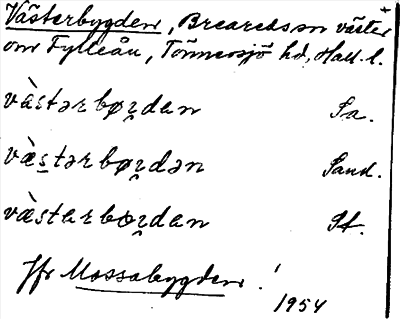 Västerbygden, Breareds sn väster +
om Fylleån, Tönnersjö hd, Hall. l.
vàstərbøꭇdan Sa.
væ̀stərbøꭇdən Sand.
vàstarbœꭇdan St.
Jfr Mossabygden !
1954